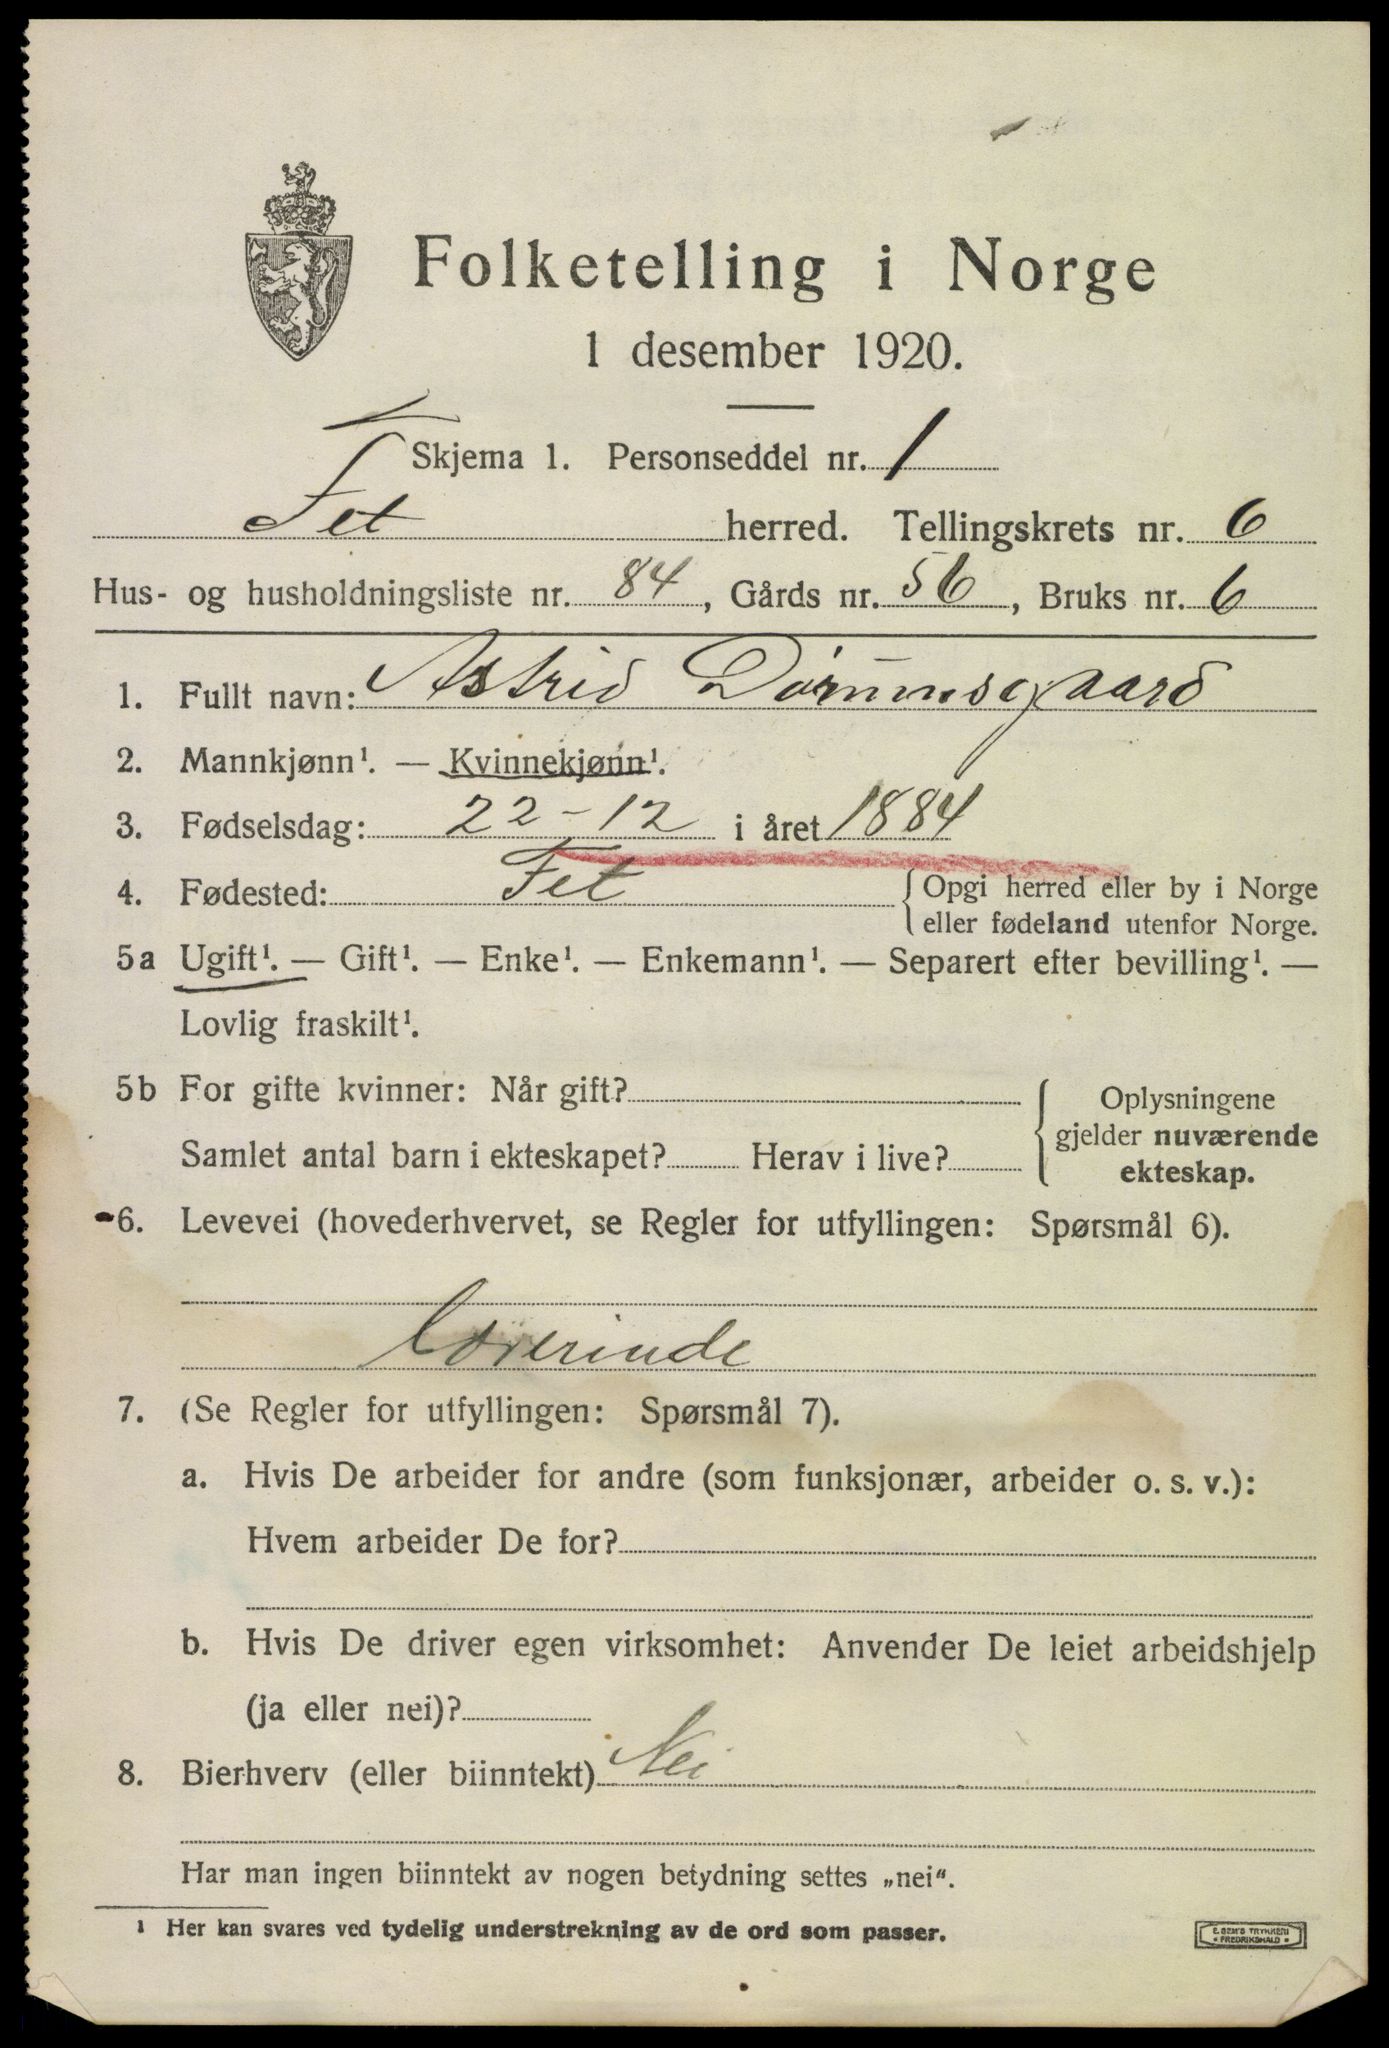 Folketelling i Norge
1 desember 1920.
Skjema 1. Personseddel nr. 1
Fet herred. Tellingskrets nr. 6
Hus- og husholdningsliste nr. 84, Gårds nr. 56, Bruks nr. 6
1. Fullt navn: Astrid Dørumsgaard
2. Mannkjønn¹. — Kvinnekjønn¹.
3. Fødselsdag: 22-12 i året 1884
4. Fødested: Fet { Opgi herred eller by i Norge
eller fødeland utenfor Norge.
5a Ugift¹. — Gift¹. — Enke¹. — Enkemann¹. — Separert efter bevilling¹. —
Lovlig fraskilt¹.
5b For gifte kvinner: Når gift?
Samlet antal barn i ekteskapet? Herav i live?
{ Oplysningene
gjelder nuværende
ekteskap.
6. Levevei (hovederhvervet, se Regler for utfyllingen: Spørsmål 6).
Lærerinde
7. (Se Regler for utfyllingen: Spørsmål 7).
a. Hvis De arbeider for andre (som funksjonær, arbeider o. s. v.):
Hvem arbeider De for?
b. Hvis De driver egen virksomhet: Anvender De leiet arbeidshjelp
(ja eller nei)?
8. Bierhverv (eller biinntekt) Nei
Har man ingen biinntekt av nogen betydning settes „nei“.
¹ Her kan svares ved tydelig understrekning av de ord som passer.
E. SEM'S TRYKKERI
• FREDRIKSHALD •